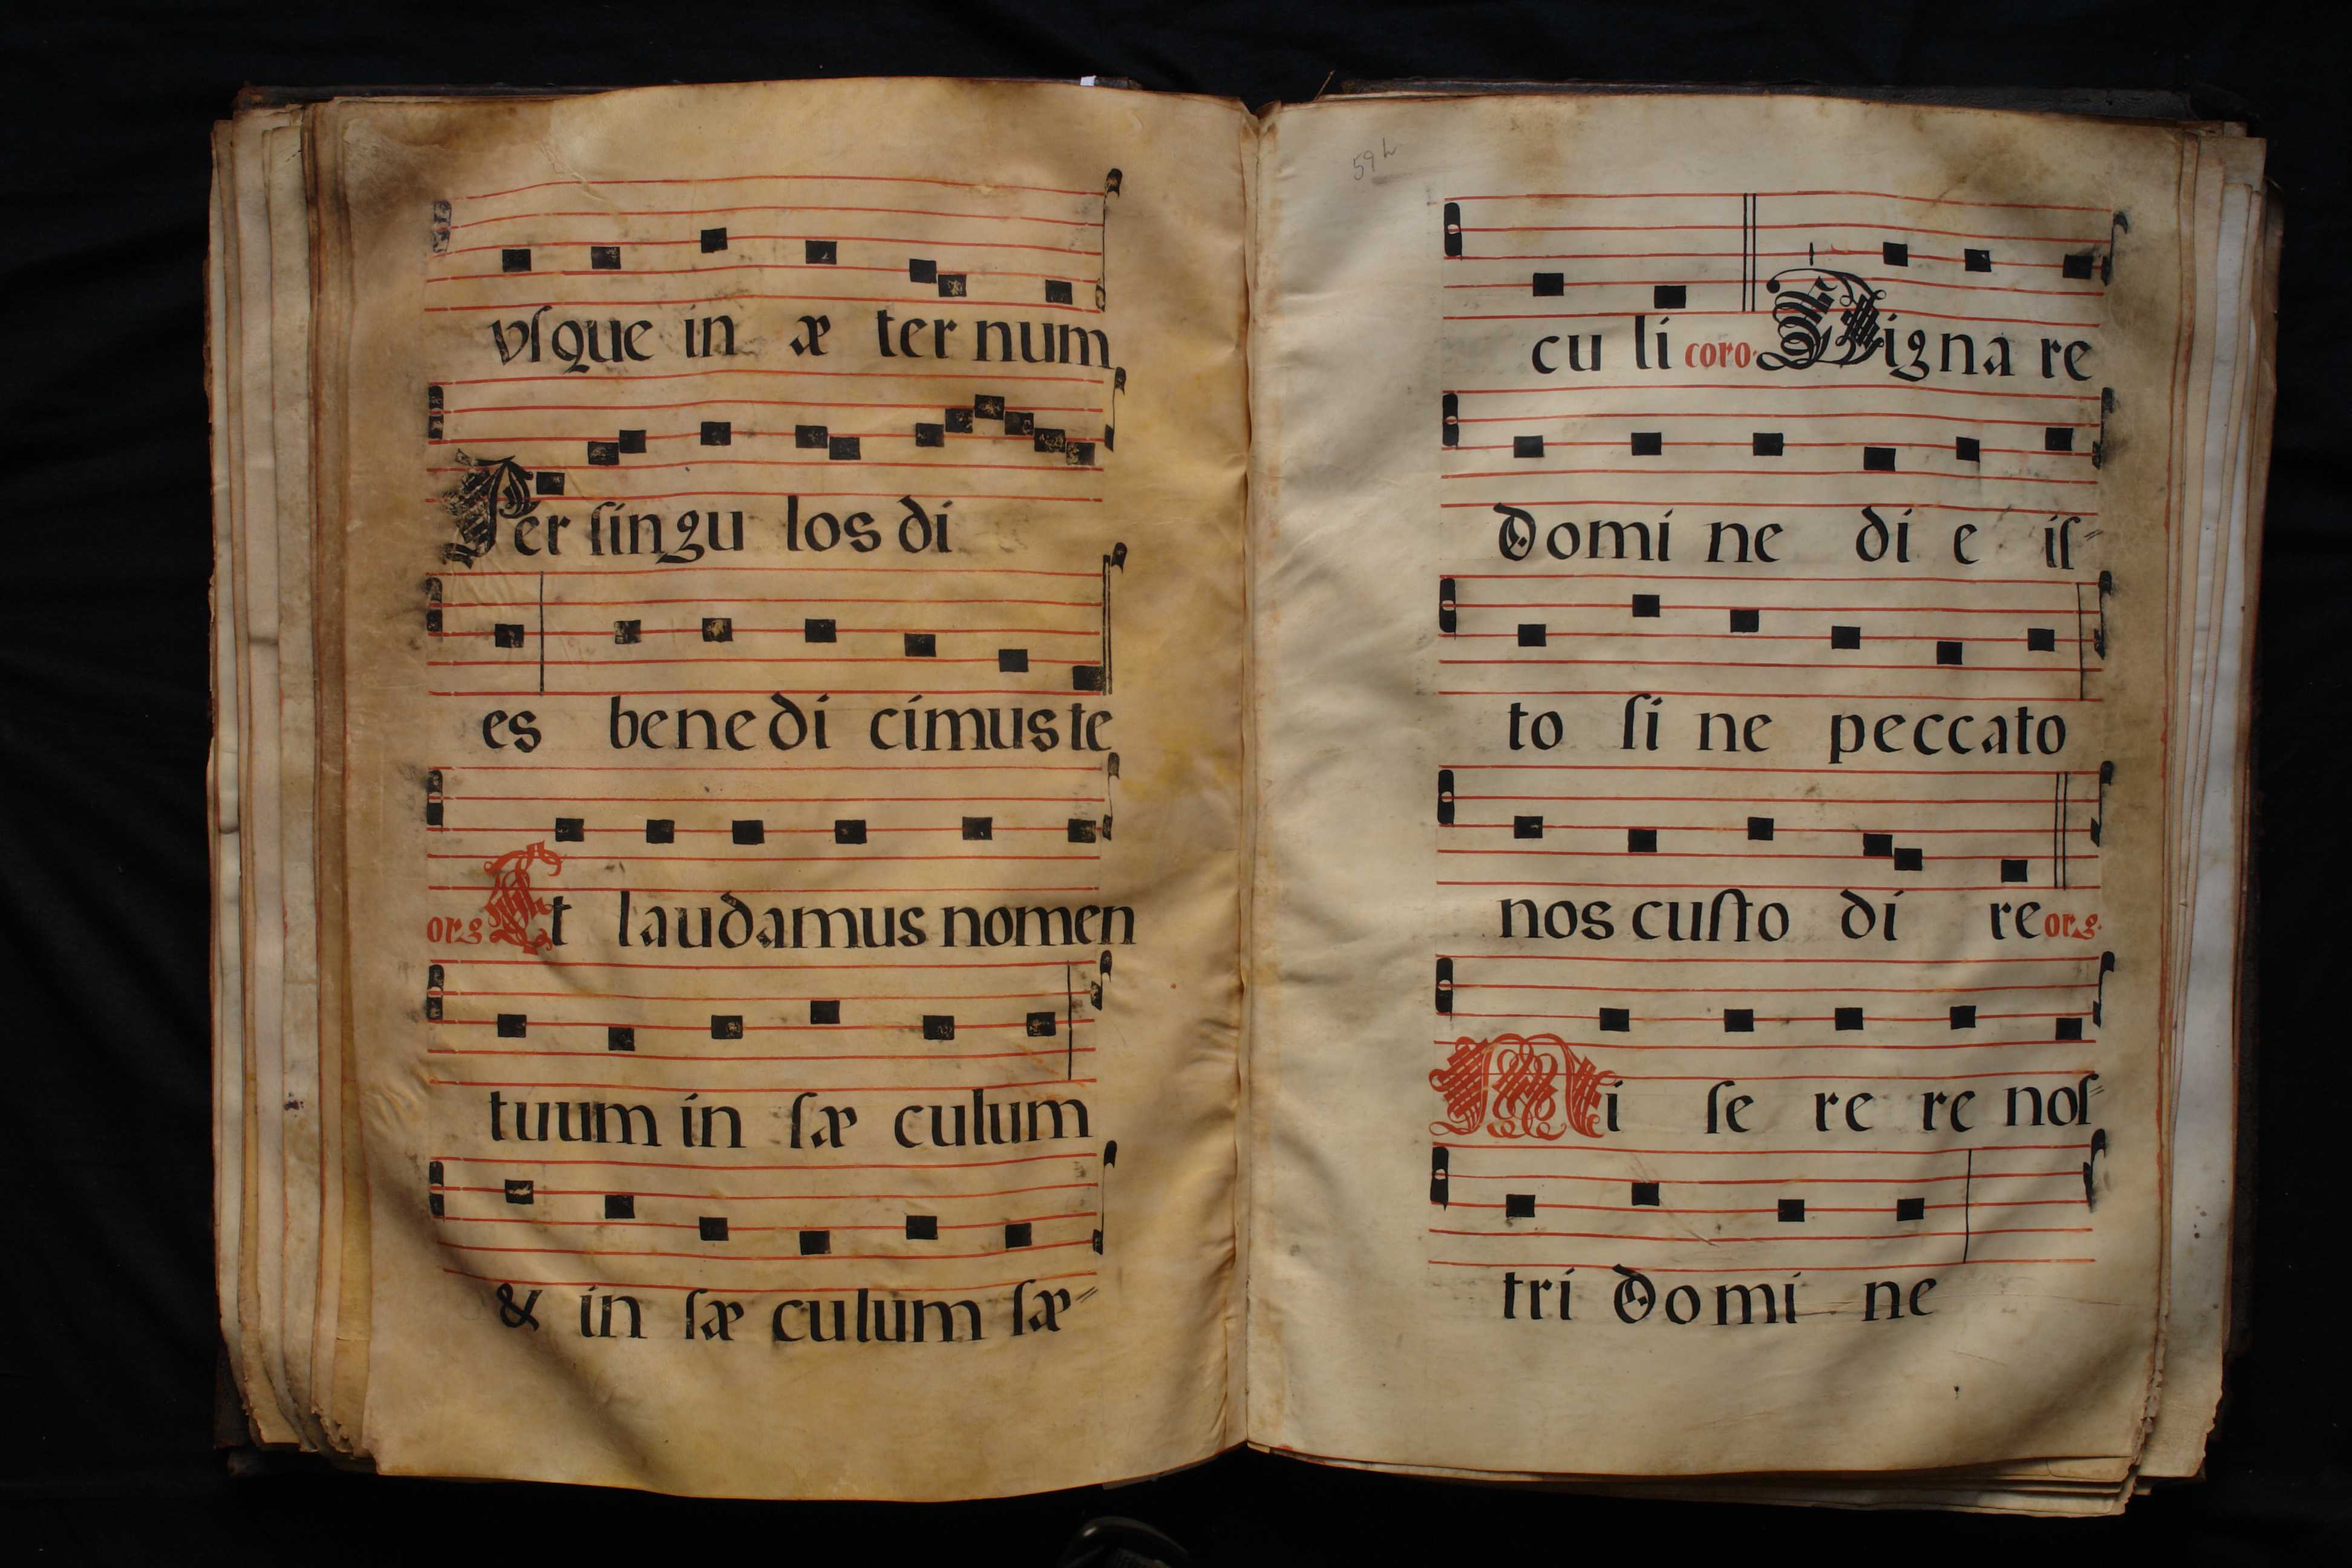 vſque in æ ter num
Per ſingu los di
es benedi cimus te
org Et laudamus nomen
tuum in ſæ culum
& in ſæ culum ſæ⸗
59
cu li coro. Digna re
Domi ne di e iſ⸗
to ſi ne peccato
nos cuſto di re org.
Mi ſe re re noſ⸗
tri Domi ne